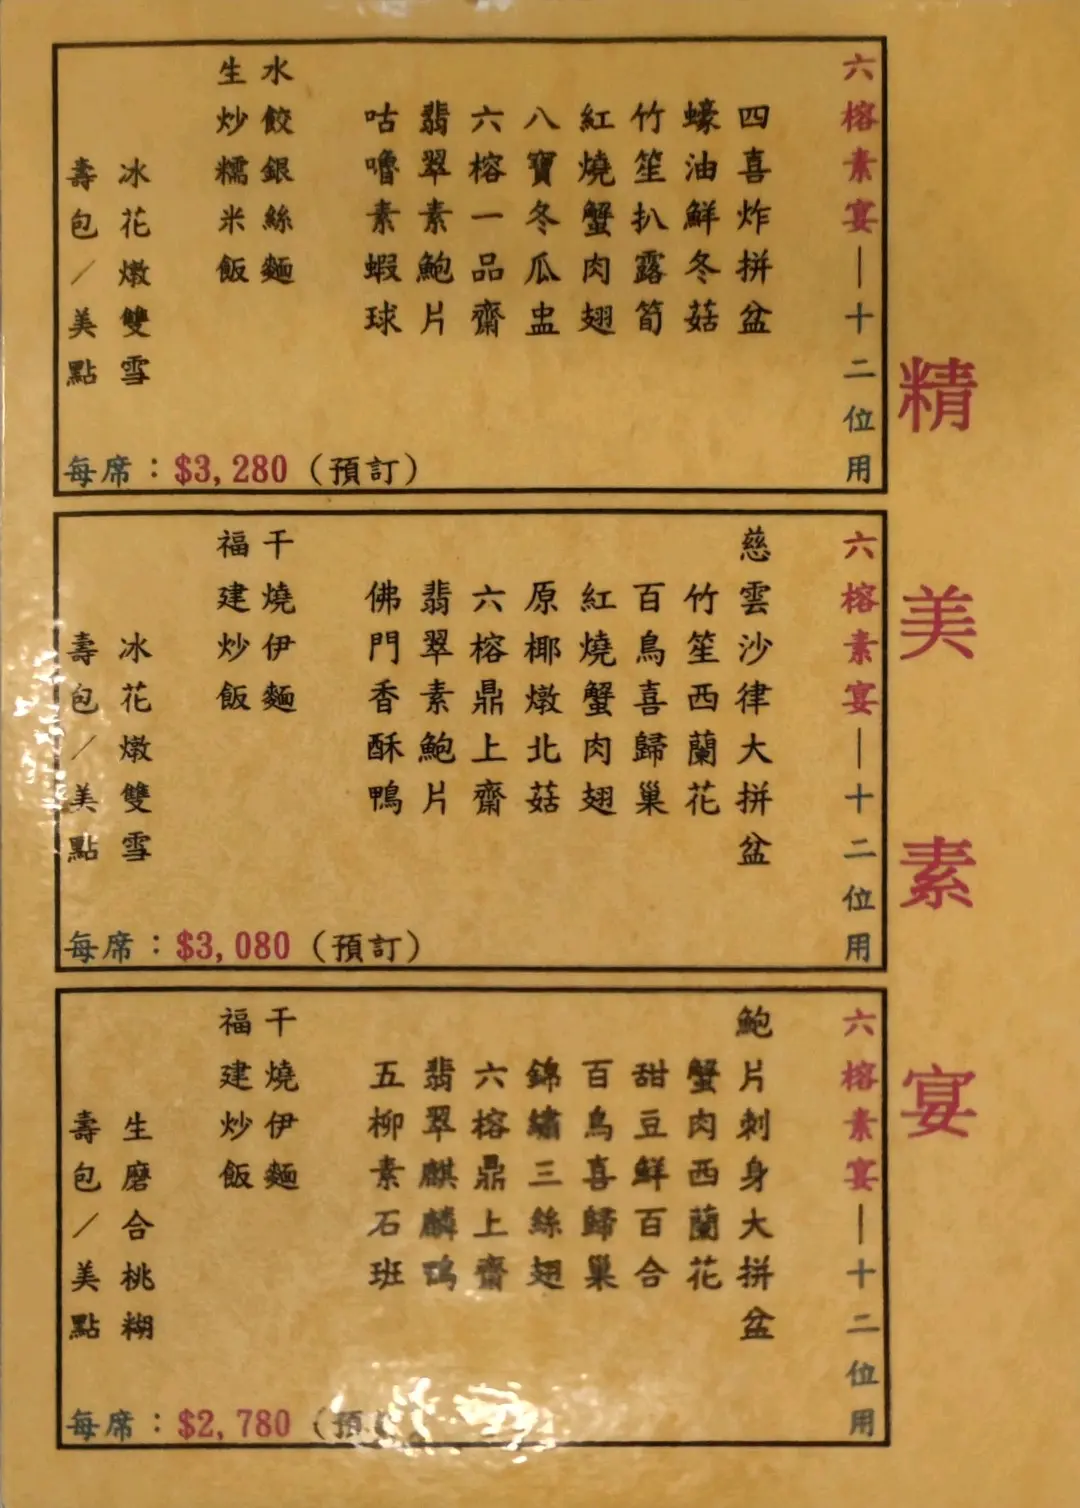 精美素宴
六榕素宴—十二位用
四喜炸拼盆
蠔油鮮冬菇
竹笙扒露筍
紅燒蟹肉翅
八寶冬瓜盅
六榕一品齋
翡翠素鮑片
咕嚕素蝦球
水餃銀絲麵
生炒糯米飯
冰花燉雙雪
壽包/美點
每席：$3,280（預訂）
六榕素宴—十二位用
慈雲沙律大拼盆
竹笙西蘭花
百鳥喜歸巢
紅燒蟹肉翅
原椰燉北菇
六榕鼎上齋
翡翠素鮑片
佛門香酥鴨
干燒伊麵
福建炒飯
冰花燉雙雪
壽包/美點
每席：$3,080（預訂）
六榕素宴—十二位用
鮑片刺身大拼盆
蟹肉西蘭花
甜豆鮮百合
百鳥喜歸巢
錦繡三絲翅
六榕鼎上齋
翡翠麒麟鴨
五柳素石班
干燒伊麵
福建炒飯
生磨合桃糊
壽包/美點
每席：$2,780（預